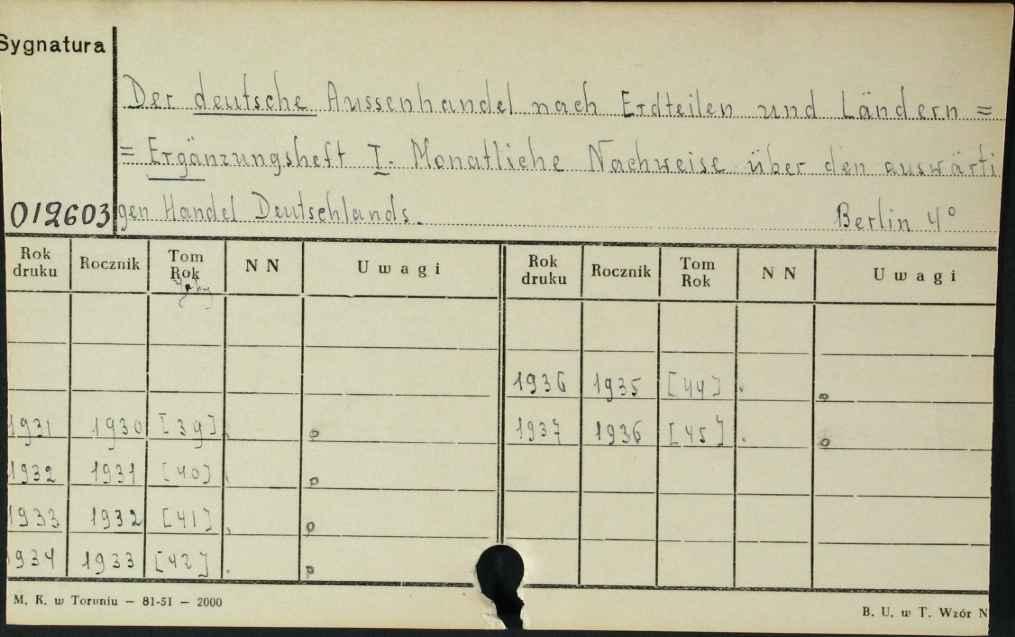 Sygnatura
Der deutsche Aussenhandel nach Erdteilen und Ländern =
= Ergänzungsheft I. Monatliche Nachweise über den auswärti
012603 gen Handel Deutschlands. Berlin 4°
Rok druku Rocznik Tom Rok N N Uwagi Rok druku Rocznik Tom Rok N N Uwagi
1936 1935 [44] .
1931 1930 [39] . 1937 1936 [45] .
1932 1931 [40] .
1933 1932 [41] .
934 1933 [42] .
M. K. w Toruniu — 81-51 — 2000
B. U. w T. Wzór N